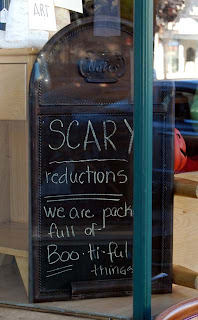 ART
SCARY
reductions
we are pack
full of
Boo-ti-ful
things